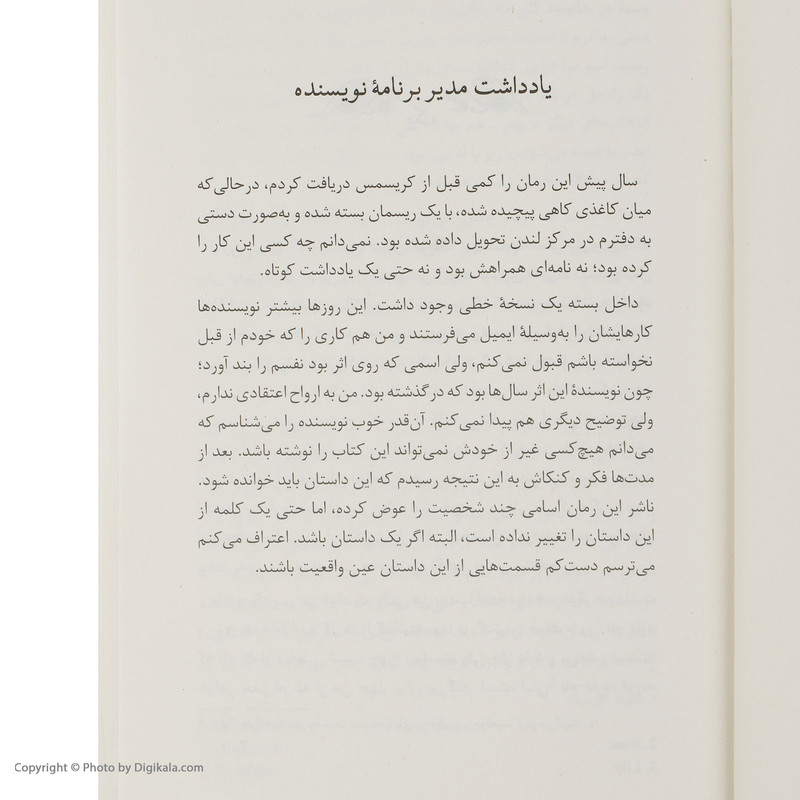 یادداشت مدیر برنامهٔ نویسنده
سال پیش این رمان را کمی قبل از کریسمس دریافت کردم، درحالی‌که
میان کاغذی کاهی پیچیده شده، با یک ریسمان بسته شده و به‌صورت دستی
به دفترم در مرکز لندن تحویل داده شده بود. نمی‌دانم چه کسی این کار را
کرده بود؛ نه نامه‌ای همراهش بود و نه حتی یک یادداشت کوتاه.
داخل بسته یک نسخهٔ خطی وجود داشت. این روزها بیشتر نویسنده‌ها
کارهایشان را به‌وسیلهٔ ایمیل می‌فرستند و من هم کاری را که خودم از قبل
نخواسته باشم قبول نمی‌کنم، ولی اسمی که روی اثر بود نفسم را بند آورد؛
چون نویسندهٔ این اثر سال‌ها بود که درگذشته بود. من به ارواح اعتقادی ندارم،
ولی توضیح دیگری هم پیدا نمی‌کنم. آن‌قدر خوب نویسنده را می‌شناسم که
می‌دانم هیچ‌کسی غیر از خودش نمی‌تواند این کتاب را نوشته باشد. بعد از
مدت‌ها فکر و کنکاش به این نتیجه رسیدم که این داستان باید خوانده شود.
ناشر این رمان اسامی چند شخصیت را عوض کرده، اما حتی یک کلمه از
این داستان را تغییر نداده است، البته اگر یک داستان باشد. اعتراف می‌کنم
می‌ترسم دست‌کم قسمت‌هایی از این داستان عین واقعیت باشند.
Copyright © Photo by Digikala.com